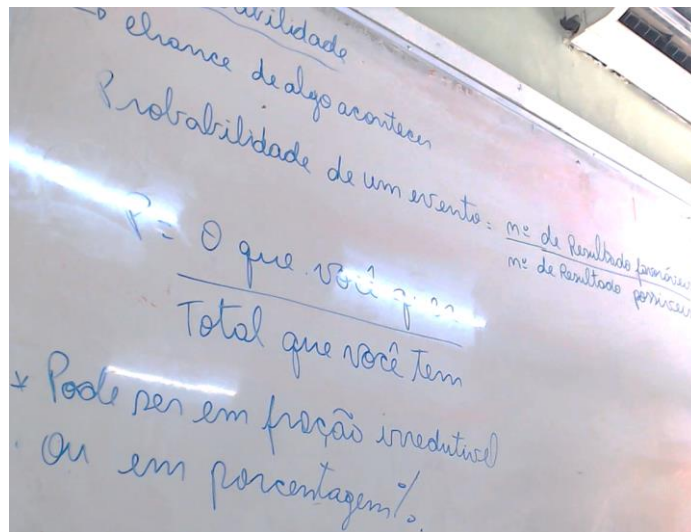 → chance de algo acontecer
Probabilidade de um evento: nº de Resultado favoráveis
nº de Resultado possíveis
P = O que você
Total que você tem
* Pode ser em fração irredutível
ou em porcentagem %.